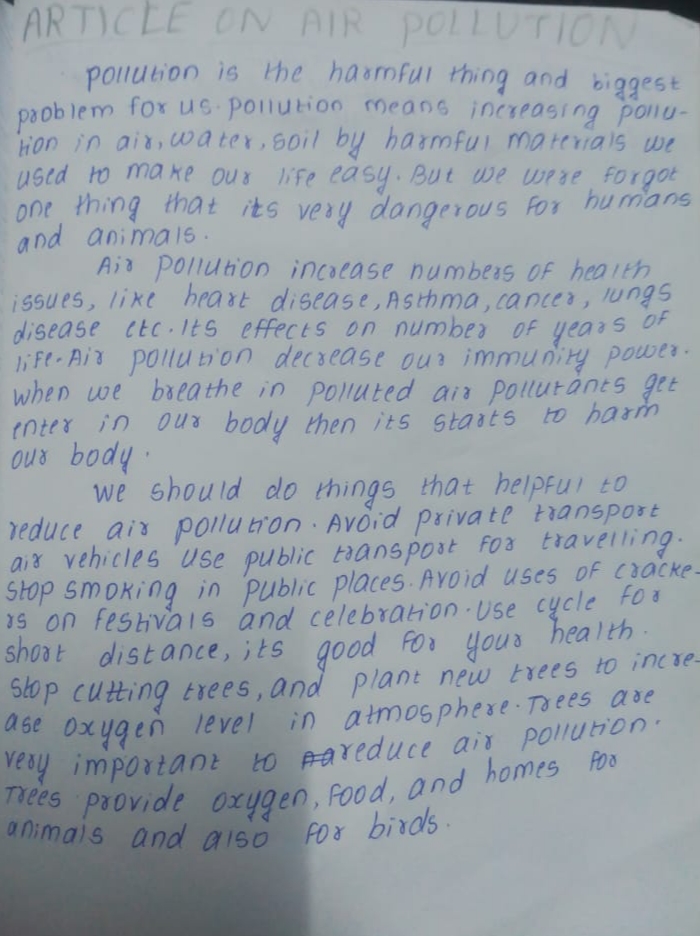 ARTICLE ON AIR POLLUTION
pollution is the harmful thing and biggest
problem for us. pollution means increasing pollu-
tion in air, water, soil by harmful materials we
used to make our life easy. But we were forgot
one thing that its very dangerous for humans
and animals.
Air pollution increase numbers of health
issues, like heart disease, Asthma, cancer, lungs
disease etc. Its effects on number of years of
life. Air pollution decrease our immunity power.
when we breathe in polluted air pollutants get
enter in our body then its starts to harm
our body.
we should do things that helpful to
reduce air pollution. Avoid private transport
air vehicles use public transport for travelling.
stop smoking in public places. Avoid uses of cracke-
rs on festivals and celebration. Use cycle for
short distance, its good for your health.
stop cutting trees, and plant new trees to incre-
ase oxygen level in atmosphere. Trees are
very important to reduce air pollution.
Trees provide oxygen, food, and homes for
animals and also for birds.